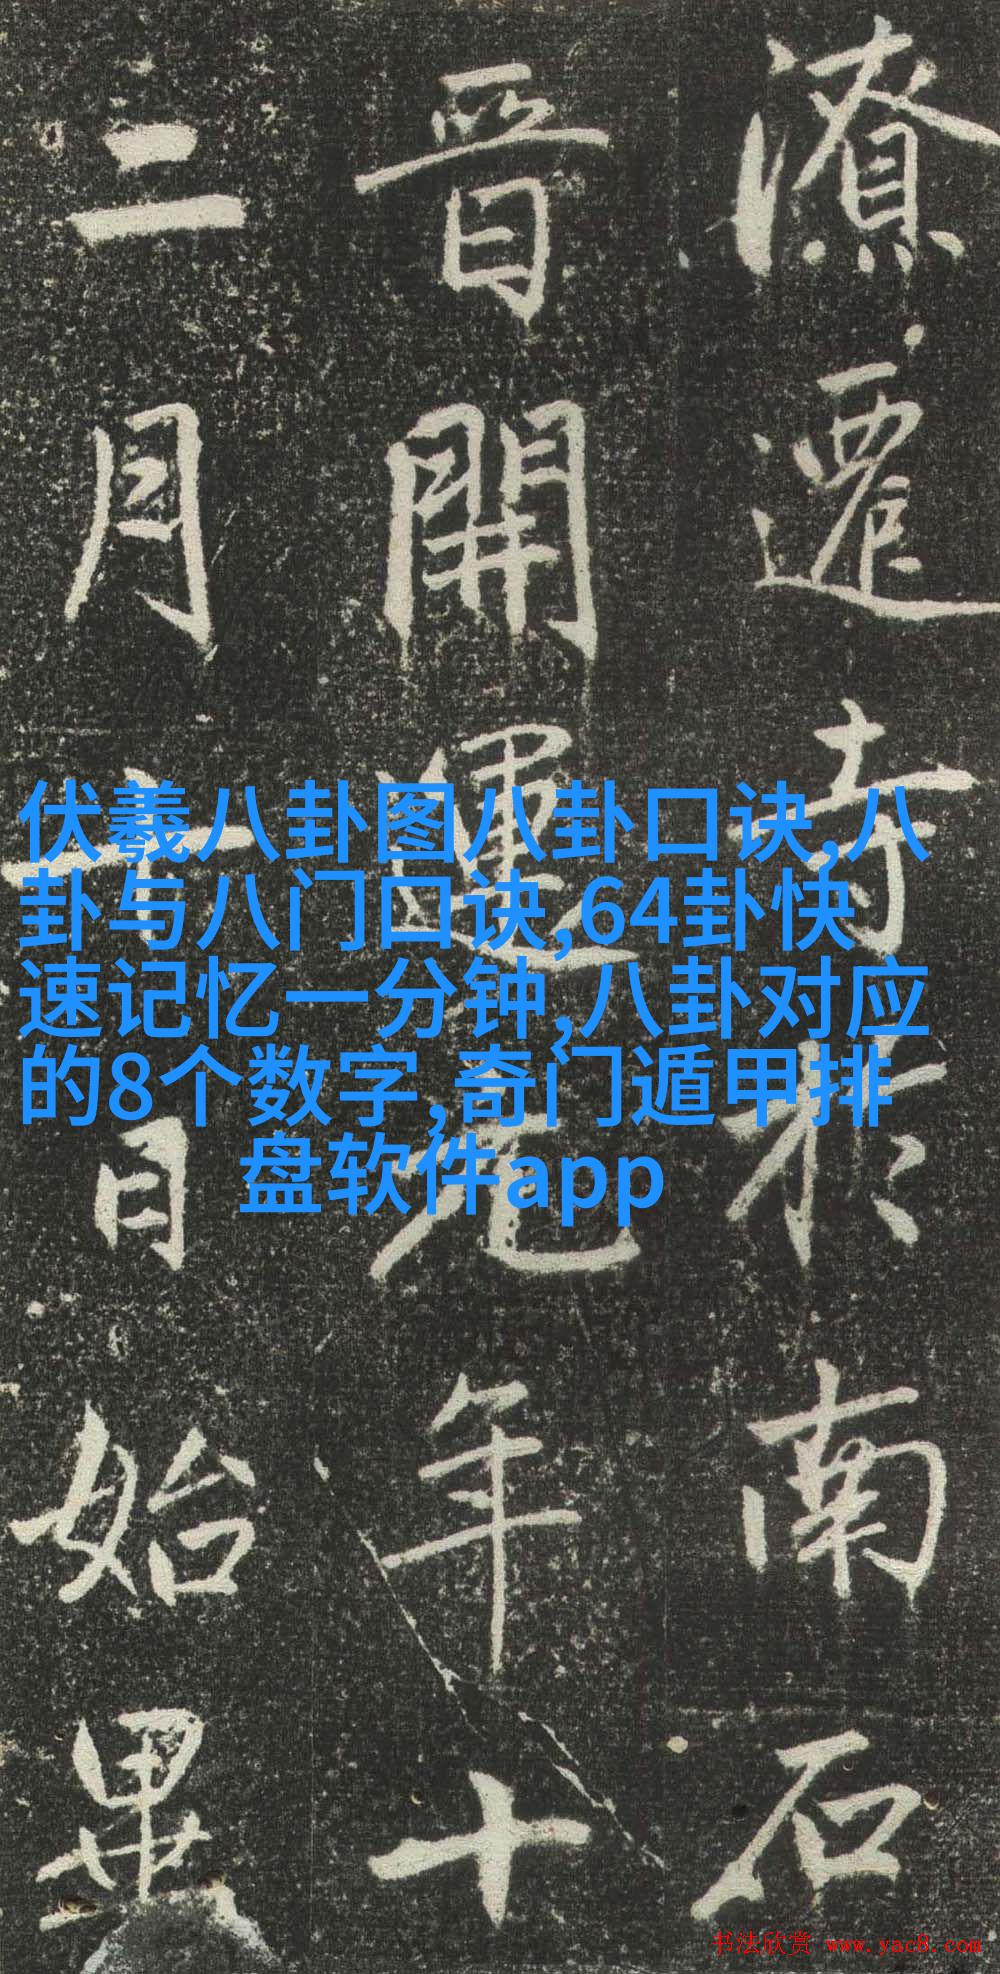 潦遷寺於南石
晉開運元年十
二月十日始畢
伏羲八卦图八卦口诀,八
卦与八门口诀,64卦快
速记忆一分钟,八卦对应
的8个数字,奇门遁甲排
盘软件app
书法欣赏 www.yac8.com